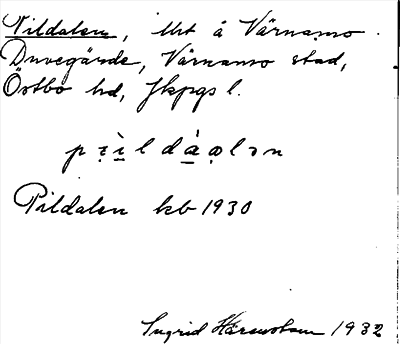 Pildalen, lht å Värnamo
Duvegärde, Värnamo stad,
Östbo hd, Jkpgs l.
pi̱ldàọlǝn
Pildalen kb 1930
Ingrid 1932